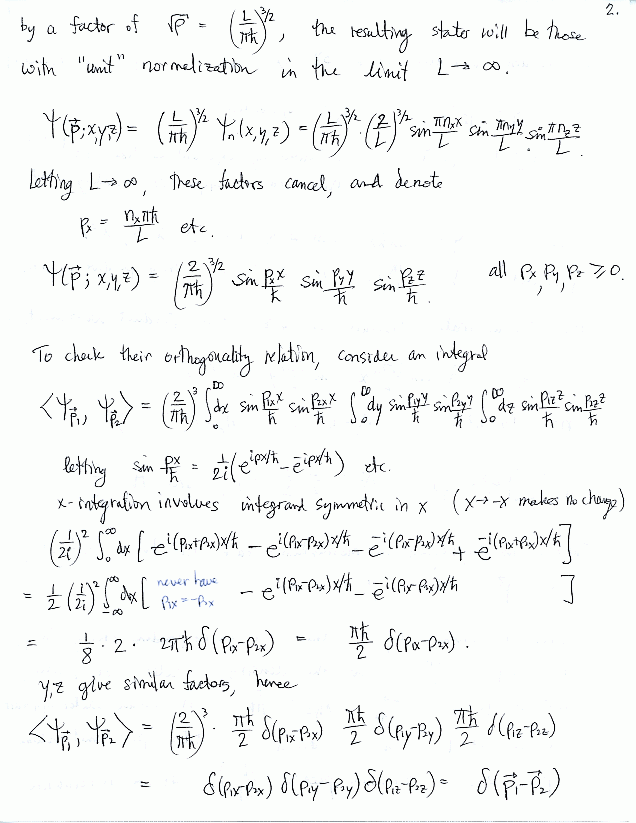 2.
by a factor of √ρ = (L/πħ)^{3/2}, the resulting states will be those
with "unit" normalization in the limit L→∞.
Ψ(p⃗;x,y,z) = (L/πħ)^{3/2} Ψₙ(x,y,z) = (L/πħ)^{3/2} · (2/L)^{3/2} sin πnₓx/L sin πn_y y/L sin πn_z z/L
Letting L→∞, these factors cancel, and denote
pₓ = nₓπħ/L etc.
Ψ(p⃗; x,y,z) = (2/πħ)^{3/2} sin pₓx/ħ sin p_y y/ħ sin p_z z/ħ. all pₓ, p_y, p_z ≥ 0.
To check their orthogonality relation, consider an integral
⟨Ψ_{p⃗₁}, Ψ_{p⃗₂}⟩ = (2/πħ)³ ∫₀^∞ dx sin p₁ₓx/ħ sin p₂ₓx/ħ ∫₀^∞ dy sin p₁y y/ħ sin p₂y y/ħ ∫₀^∞ dz sin p₁z z/ħ sin p₂z z/ħ
letting sin px/ħ = 1/2i (e^{ipx/ħ} − e^{−ipx/ħ}) etc.
x-integration involves integrand symmetric in x (x→−x makes no change)
(1/2i)² ∫₀^∞ dx [ e^{i(p₁ₓ+p₂ₓ)x/ħ} − e^{i(p₁ₓ−p₂ₓ)x/ħ} − e^{−i(p₁ₓ−p₂ₓ)x/ħ} + e^{−i(p₁ₓ+p₂ₓ)x/ħ} ]
= 1/2 (1/2i)² ∫_{−∞}^∞ dx [ never have p₁ₓ = −p₂ₓ − e^{i(p₁ₓ−p₂ₓ)x/ħ} − e^{−i(p₁ₓ−p₂ₓ)x/ħ} ]
= 1/8 · 2 · 2πħ δ(p₁ₓ−p₂ₓ) = πħ/2 δ(p₁ₓ−p₂ₓ).
y,z give similar factors, hence
⟨Ψ_{p⃗₁}, Ψ_{p⃗₂}⟩ = (2/πħ)³ · πħ/2 δ(p₁ₓ−p₂ₓ) πħ/2 δ(p₁y−p₂y) πħ/2 δ(p₁z−p₂z)
= δ(p₁ₓ−p₂ₓ) δ(p₁y−p₂y) δ(p₁z−p₂z) = δ(p⃗₁−p⃗₂)